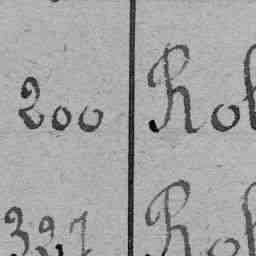 200 Rob
327 Rob